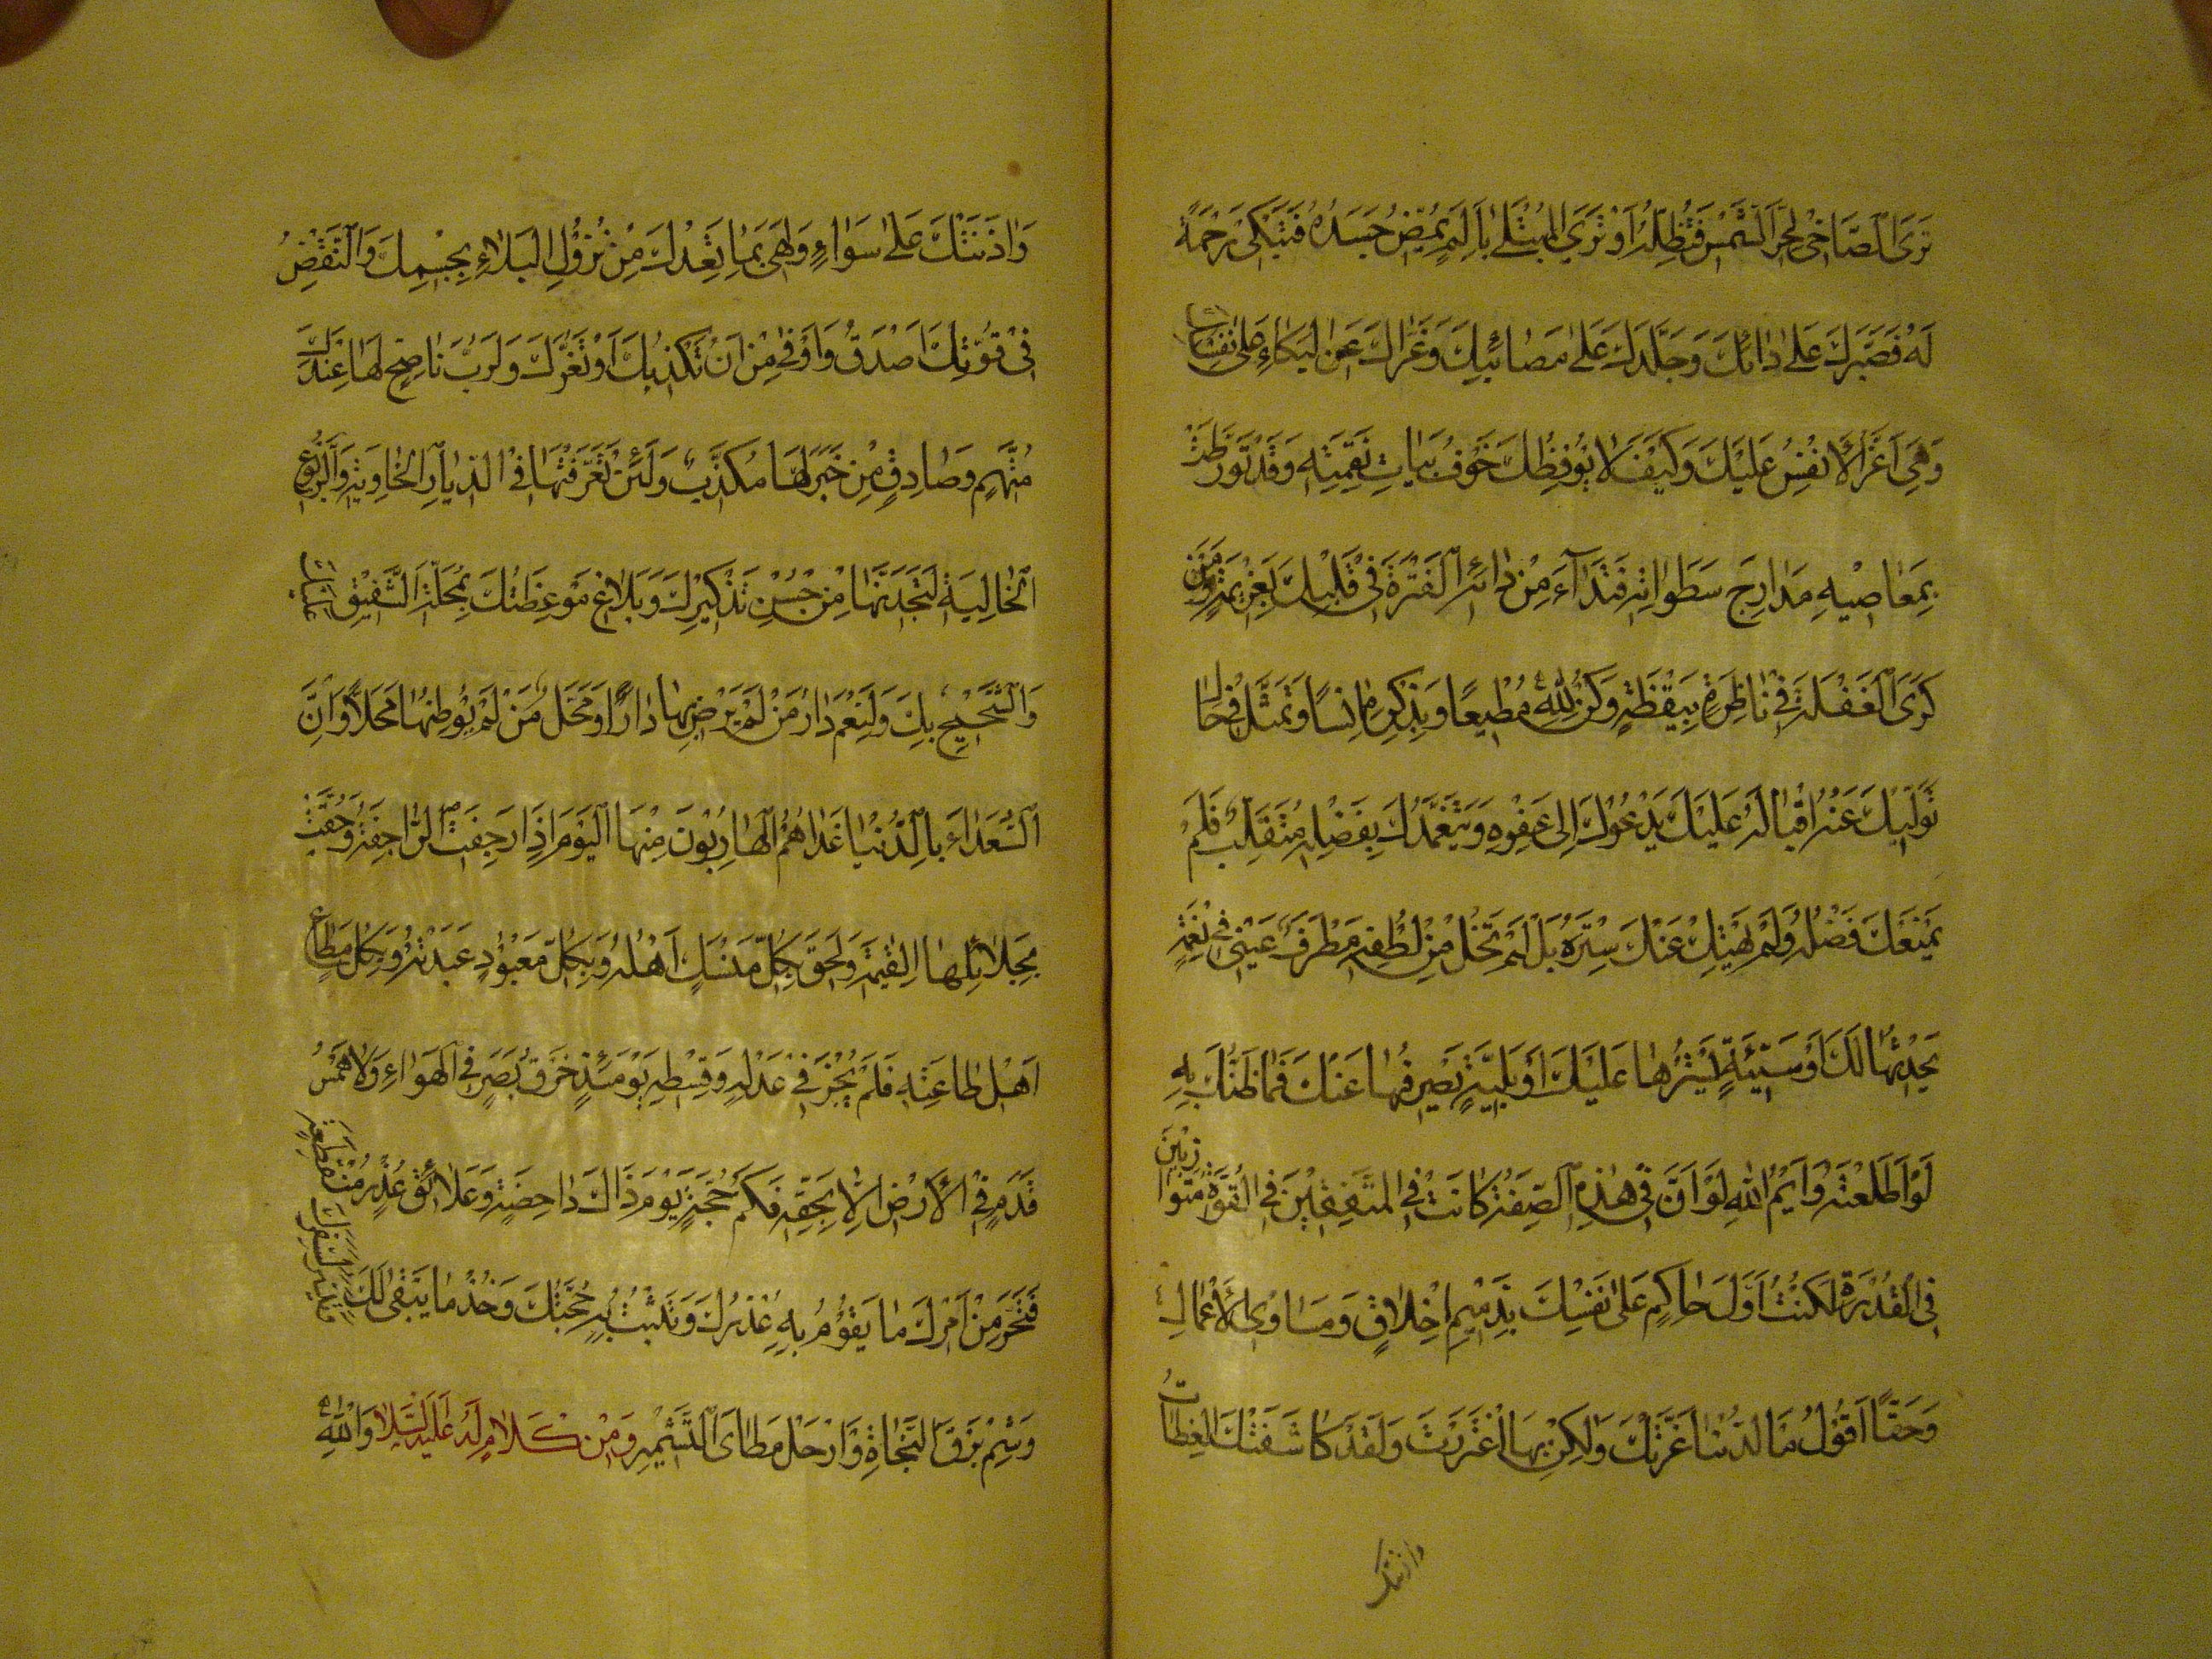 تَرَى الصَّاحِي لِحَرِّ الشَّمْسِ فَتُظِلُّهُ اَوْ تَرَى الْمُبْتَلٰى بِاَلَمٍ يُمِضُّ جَسَدَهُ فَتَبْكِي رَحْمَةً
لَهُ فَمَا صَبَّرَكَ عَلٰى دَائِكَ وَجَلَّدَكَ عَلٰى مَصَائِبِكَ وَعَزَّاكَ عَنِ الْبُكَاءِ عَلٰى نَفْسِكَ
وَهِيَ اَعَزُّ الْاَنْفُسِ عَلَيْكَ وَكَيْفَ لَا يُوقِظُكَ خَوْفُ بَيَاتِ نِقْمَتِهِ وَقَدْ تَوَرَّطْتَ
بِمَعَاصِيهِ مَدَارِجَ سَطَوَاتِهِ فَتَدَاوَ مِنْ دَاءِ الْفَتْرَةِ فِي قَلْبِكَ بِعَزِيمَةٍ وَمِنْ
كَرَى الْغَفْلَةِ فِي نَاظِرِكَ بِيَقَظَةٍ وَكُنْ لِلّٰهِ مُطِيعًا وَبِذِكْرِهِ اٰنِسًا وَتَمَثَّلْ فِي حَالِ
تَوَلِّيكَ عَنْهُ اِقْبَالَهُ عَلَيْكَ يَدْعُوكَ اِلٰى عَفْوِهِ وَيَتَغَمَّدُكَ بِفَضْلِهِ فَلَمْ
يَمْنَعْكَ فَضْلَهُ وَلَمْ يَهْتِكْ عَنْكَ سِتْرَهُ بَلْ لَمْ تَخْلُ مِنْ لُطْفِهِ مَطْرَفَ عَيْنٍ فِي نِعْمَةٍ
يُحْدِثُهَا لَكَ اَوْ سَيِّئَةٍ يَسْتُرُهَا عَلَيْكَ اَوْ بَلِيَّةٍ يَصْرِفُهَا عَنْكَ فَمَا ظَنُّكَ بِهِ
لَوْ اَطَعْتَهُ وَاَيْمُ اللّٰهِ لَوْ اَنَّ هٰذِهِ الصِّفَةَ كَانَتْ فِي الْمُتَّفِقَيْنِ فِي الْقُوَّةِ مُتَوَازِيَيْنِ
فِي الْقُدْرَةِ لَكُنْتَ اَوَّلَ حَاكِمٍ عَلٰى نَفْسِكَ بِذَمِيمِ الْاَخْلَاقِ وَمَسَاوِى الْاَعْمَالِ
وَحَقًّا اَقُولُ مَا الدُّنْيَا غَرَّتْكَ وَلٰكِنْ بِهَا اغْتَرَرْتَ وَلَقَدْ كَاشَفَتْكَ الْعِظَاتِ
وَاٰذَنَتْكَ عَلٰى سَوَاءٍ وَلَهِيَ بِمَا تَعِدُكَ مِنْ نُزُولِ الْبَلَاءِ بِجِسْمِكَ وَالنَّقْضِ
فِي قُوَّتِكَ اَصْدَقُ وَاَوْفٰى مِنْ اَنْ تَكْذِبَكَ اَوْ تَغُرَّكَ وَلَرُبَّ نَاصِحٍ لَهَا عِنْدَكَ
مُتَّهَمٍ وَصَادِقٍ مِنْ خَبَرِهَا مُكَذَّبٍ وَلَئِنْ تَعَرَّفْتَهَا فِي الدِّيَارِ الْخَاوِيَةِ وَالرُّبُوعِ
الْخَالِيَةِ لَتَجِدَنَّهَا مِنْ حُسْنِ تَذْكِيرِكَ وَبَلَاغِ مَوْعِظَتِكَ بِمَحَلَّةِ الشَّفِيقِ عَلَيْكَ
وَالشَّحِيحِ بِكَ وَلَنِعْمَ دَارُ مَنْ لَمْ يَرْضَ بِهَا دَارًا وَمَحَلُّ مَنْ لَمْ يُوَطِّنْهَا مَحَلًّا وَاِنَّ
السُّعَدَاءَ بِالدُّنْيَا غَدًا هُمُ الْهَارِبُونَ مِنْهَا الْيَوْمَ اِذَا رَجَفَتِ الرَّاجِفَةُ وَحَقَّتْ
بِجَلَائِلِهَا الْقِيٰمَةُ وَلَحِقَ بِكُلِّ مَنْسَكٍ اَهْلُهُ وَبِكُلِّ مَعْبُودٍ عَبَدَتُهُ وَبِكُلِّ مُطَاعٍ
اَهْلُ طَاعَتِهِ فَلَمْ يَجْزِ فِي عَدْلِهِ وَقِسْطِهِ يَوْمَئِذٍ خَرْقُ بَصَرٍ فِي الْهَوَاءِ وَلَا هَمْسُ
قَدَمٍ فِي الْاَرْضِ اِلَّا بِحَقِّهِ فَكَمْ حُجَّةٍ يَوْمَ ذَاكَ دَاحِضَةٍ وَعَلَائِقِ عُذْرٍ مُنْقَطِعَةٍ
فَتَحَرَّ مِنْ اَمْرِكَ مَا يَقُومُ بِهِ عُذْرُكَ وَتَثْبُتُ بِهِ حُجَّتُكَ وَخُذْ مَا يَبْقٰى لَكَ وَتَيَسَّرْ لِسَفَرِكَ
وَشِمْ بَرْقَ النَّجَاةِ وَارْحَلْ مَطَايَا التَّشْمِيرِ وَمِنْ كَلَامٍ لَهُ عَلَيْهِ السَّلَامُ وَاللّٰهِ